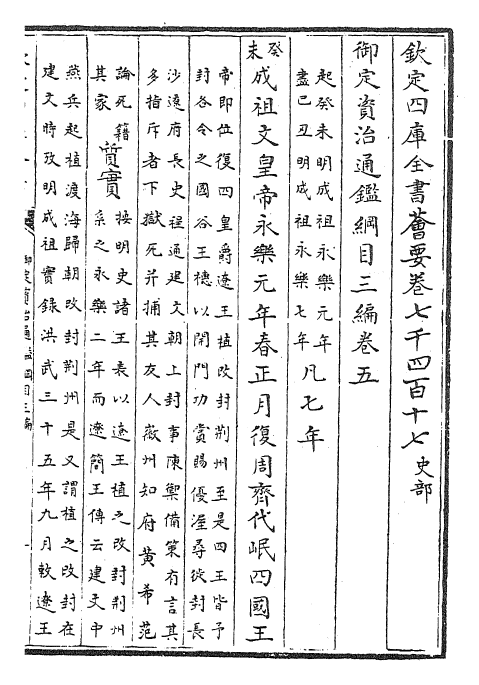 欽定四庫全書薈要卷七千四百十七史部
御定資治通鑑綱目三編卷五
起癸未明成祖永樂元年
盡己丑明成祖永樂七年
凡七年
癸未
成祖文皇帝永樂元年春正月復周齊代岷四國王
帝即位復四皇爵遼王植改封荆州至是四王皆予
封各令之國谷王橞以開門功賞賜優渥尋徙封長
沙遼府長史程通建文朝上封事陳禦備策有言其
多指斥者下獄死并捕其友人徽州知府黄希范
論死籍
其家
質實
按明史諸王表以遼王植之改封荆州
系之永樂二年而遼簡王傳云建文中
燕兵起植渡海歸朝改封荆州是又謂植之改封在
建文時攷明成祖實録洪武三十五年九月敕遼王
御定資治通鑑綱目三編